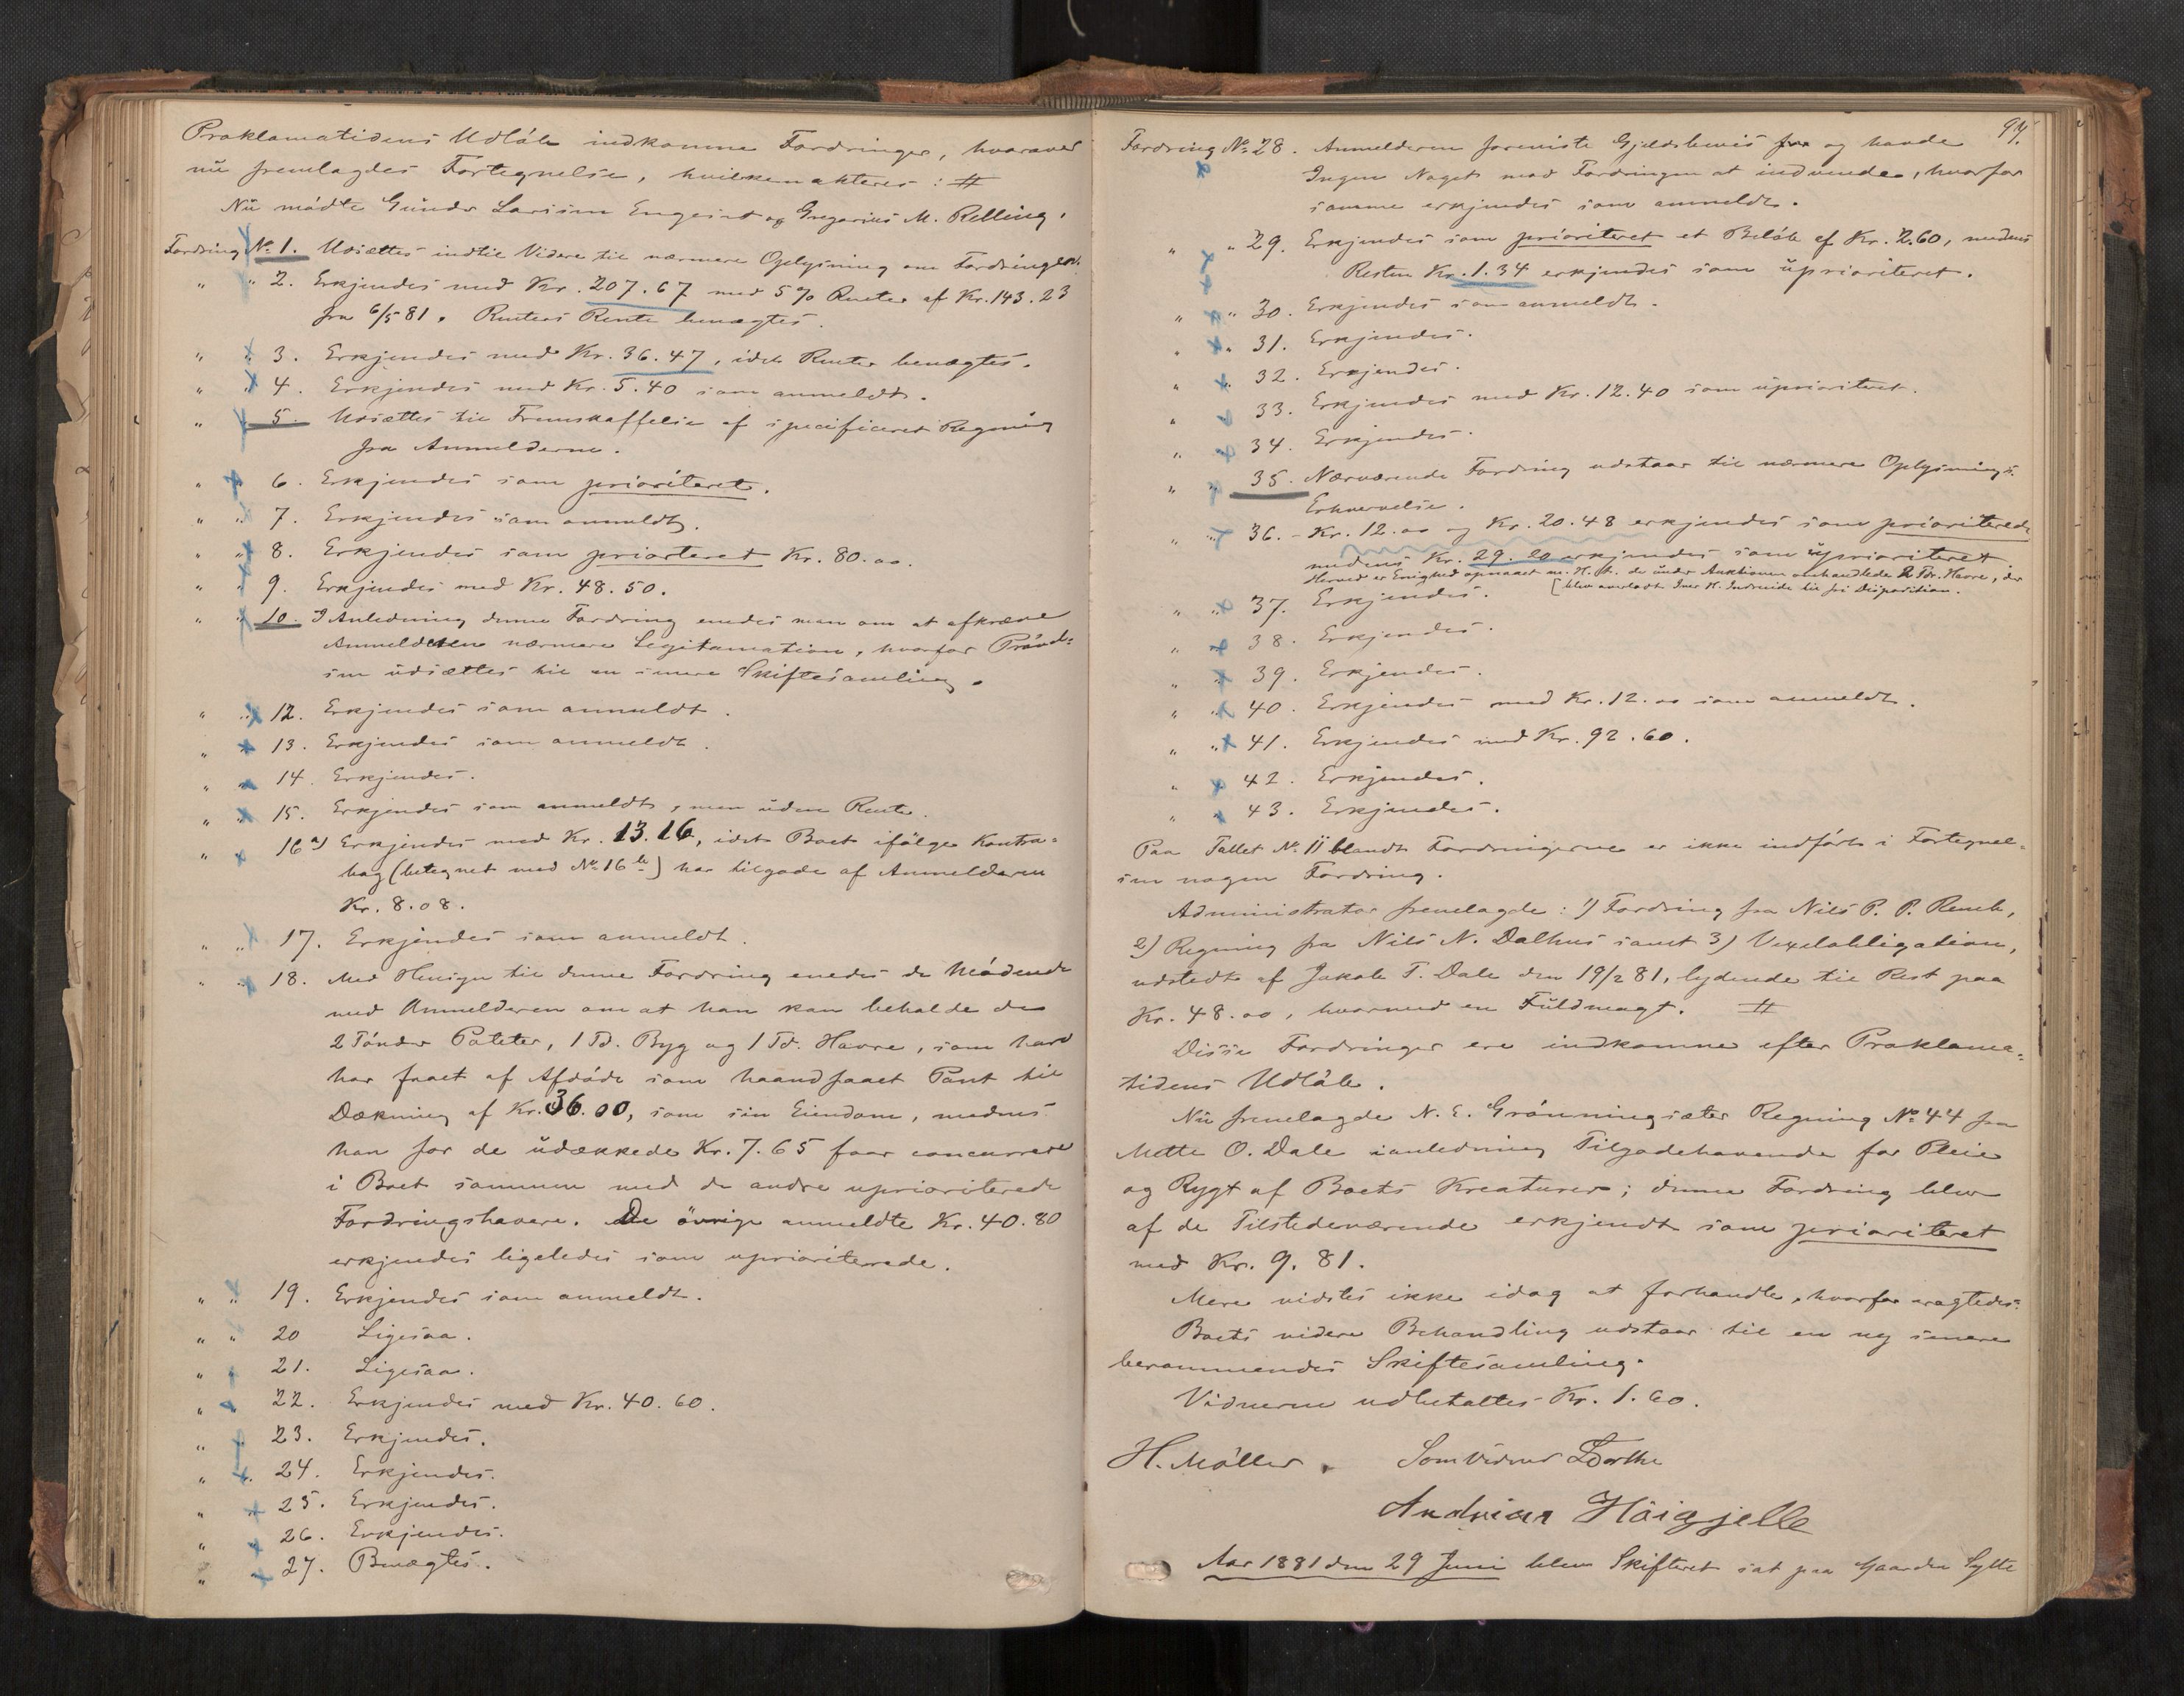 Proklamatidens Udløb indkomne Fordringer, hvoraver
nu fremlagdes Fortegnelse, hvilken akteres: #
Nu mødte Gunder Larssen Engeset og Gregorius M. Relling.
Fordring No 1. Udsættes indtil Videre til nærmere Oplysning om Fordringen.
" " 2. Erkjendes med Kr. 207.67 med 5 % Renter af Kr. 143.23
fra 6/5 81. Renters Rente benægtes.
" " 3. Erkjendes med Kr. 36.47, idet Renter benægtes.
" " 4. Erkjendes med Kr. 5.40 som anmeldt.
" 5. Udsættes til Fremskaffelse af specificeret Regning
fra Anmelderne.
" " 6. Erkjendes som prioriteret.
" " 7. Erkjendes som anmeldt.
" " 8. Erkjendes som priorteret Kr. 80.00.
" " 9. Erkjendes med Kr. 48.50.
" " 10. I Anledning denne Fordring enedes man om at afkræve
Anmelderen nærmere Legitamation, hvorfor Prøvel=
sen udsættes til en senere Skiftesamling.
" " 12. Erkjendes som anmeldt.
" " 13. Erkjendes som anmeldt.
" " 14. Erkjendes.
" " 15. Erkjendes som anmeldt, men uden Rente.
" " 16 a) Erkjendes med Kr. 13.16, idet Boet ifølge Kontra=
bog (betegnet med No 16 b) har tilgode af Anmelderen
Kr. 8.08.
" " 17. Erkjendes som anmeldt.
" " 18. Med Hensyn til denne Fordring enedes de Mødende
med Anmelderen om at han kan beholde de
2 Tønder Poteter, 1 Td. Byg og 1 Td. Havre, som han
har faaet af Afdøde som haandfaaet Pant til
Dækning af Kr. 36.00, som sin Eiendom, medens
han for de udækkede Kr. 7.65 faar concurrere
i Boet sammen med de andre uprioriterede
Fordringshavere. De øvrige anmeldte Kr. 40.80
erkjendes ligeledes som uprioriterede.
" " 19. Erkjendes som anmeldt.
" " 20 Ligesaa.
" " 21. Ligesaa.
" " 22. Erkjendes med Kr. 40.60.
" " 23. Erkjendes.
" " 24. Erkjendes.
" " 25. Erkjendes.
" " 26. Erkjendes.
" " 27. Benægtes.
94.
Fordring No 28. Anmelderen foreviste Gjældsbevis for og havde
Ingen Noget mod Fordringen at indvende, hvorfor
samme erkjendes som anmeldt.
" " 29. Erkjendes som prioriteret et Beløb af Kr. 2.60, medens
Resten Kr. 1.34 erkjendes som uprioriteret.
" " 30. Erkjendes som anmeldt.
" " 31. Erkjendes.
" " 32. Erkjendes.
" 33. Erkjendes med Kr. 12.40 som uprioriteret.
" " 34. Erkjendes.
" " 35. Nærværende Fordring udstaar til nærmere Oplysnings
Erhvervelse.
" " 36. - Kr. 12.00 og Kr. 20.48 erkjendes som prioriterede
medens Kr. 29.20 erkjendes som uprioriteret
Herved er Enighed opnaaet m. H. t. de under Auktionen omhandlede 2 Tdr. Havre, der
[blev overladt Iver H. Indreide til fri Disposition.
" " 37. Erkjendes.
" " 38. Erkjendes.
" " 39. Erkjendes.
" " 40. Erkjendes med Kr. 12.00 som anmeldt.
" " 41. Erkjendes med Kr. 92.60.
" " 42. Erkjendes.
" " 43. Erkjendes.
Paa Tallet No. 11 blandt Fordringerne er ikke indført i Fortegnel=
sen nogen Fordring.
Administrator fremlagde: 1) Fordring fra Nils P. P.
2) Regning fra Nils N. Dalhus samt 3) Vexelobligation,
udstedt af Jakob T. Dale den 19/2 81, lydende til Rest paa
Kr. 48.00, hvormed en Fuldmagt. #
Disse Fordringer ere indkomne efter Proklama=
tidens Udløb.
Nu fremlagde N. E. Grønningsæter Regning No 44 fra
Mette O. Dale i anledning Tilgodehavende for Pleie
og Rygt af Boets Kreaturer; denne Fordring blev
af de Tilstedeværende erkjendt som prioriteret
med Kr. 9.81.
Mere vidstes ikke idag at forhandle, hvorfor eragtedes:
Boets videre Behandling udstaar til en ny senere
berammendes Skiftesamling.
Vidnerne udbetaltes Kr. 1.60.
H. Møller. Som Vidner
Andreas Høigjelle
Aar 1881 den 29 Juni blev Skifteret sat paa Gaarden Sylte